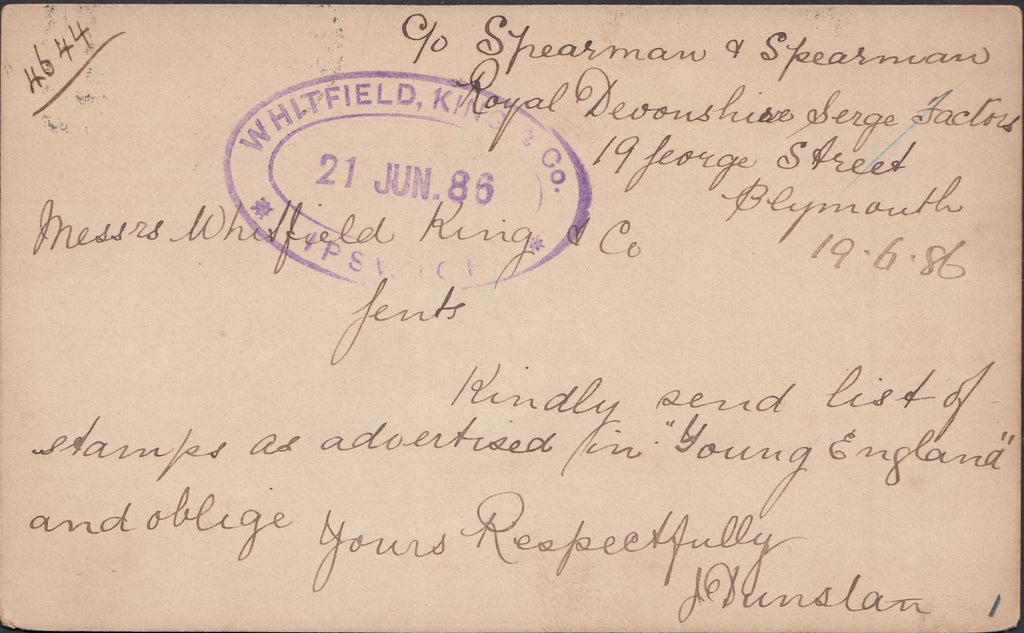 4644
c/o Spearman & Spearman
Royal Devonshire Serge Factors
19 George Street
Plymouth
19.6.86
WHITFIELD, KING & Co.
21 JUN.86
IPSWICH
Messrs Whitfield King & Co
Gents
Kindly send list of
stamps as advertised in "Young England"
and oblige
Yours Respectfully
J Dunstan
1